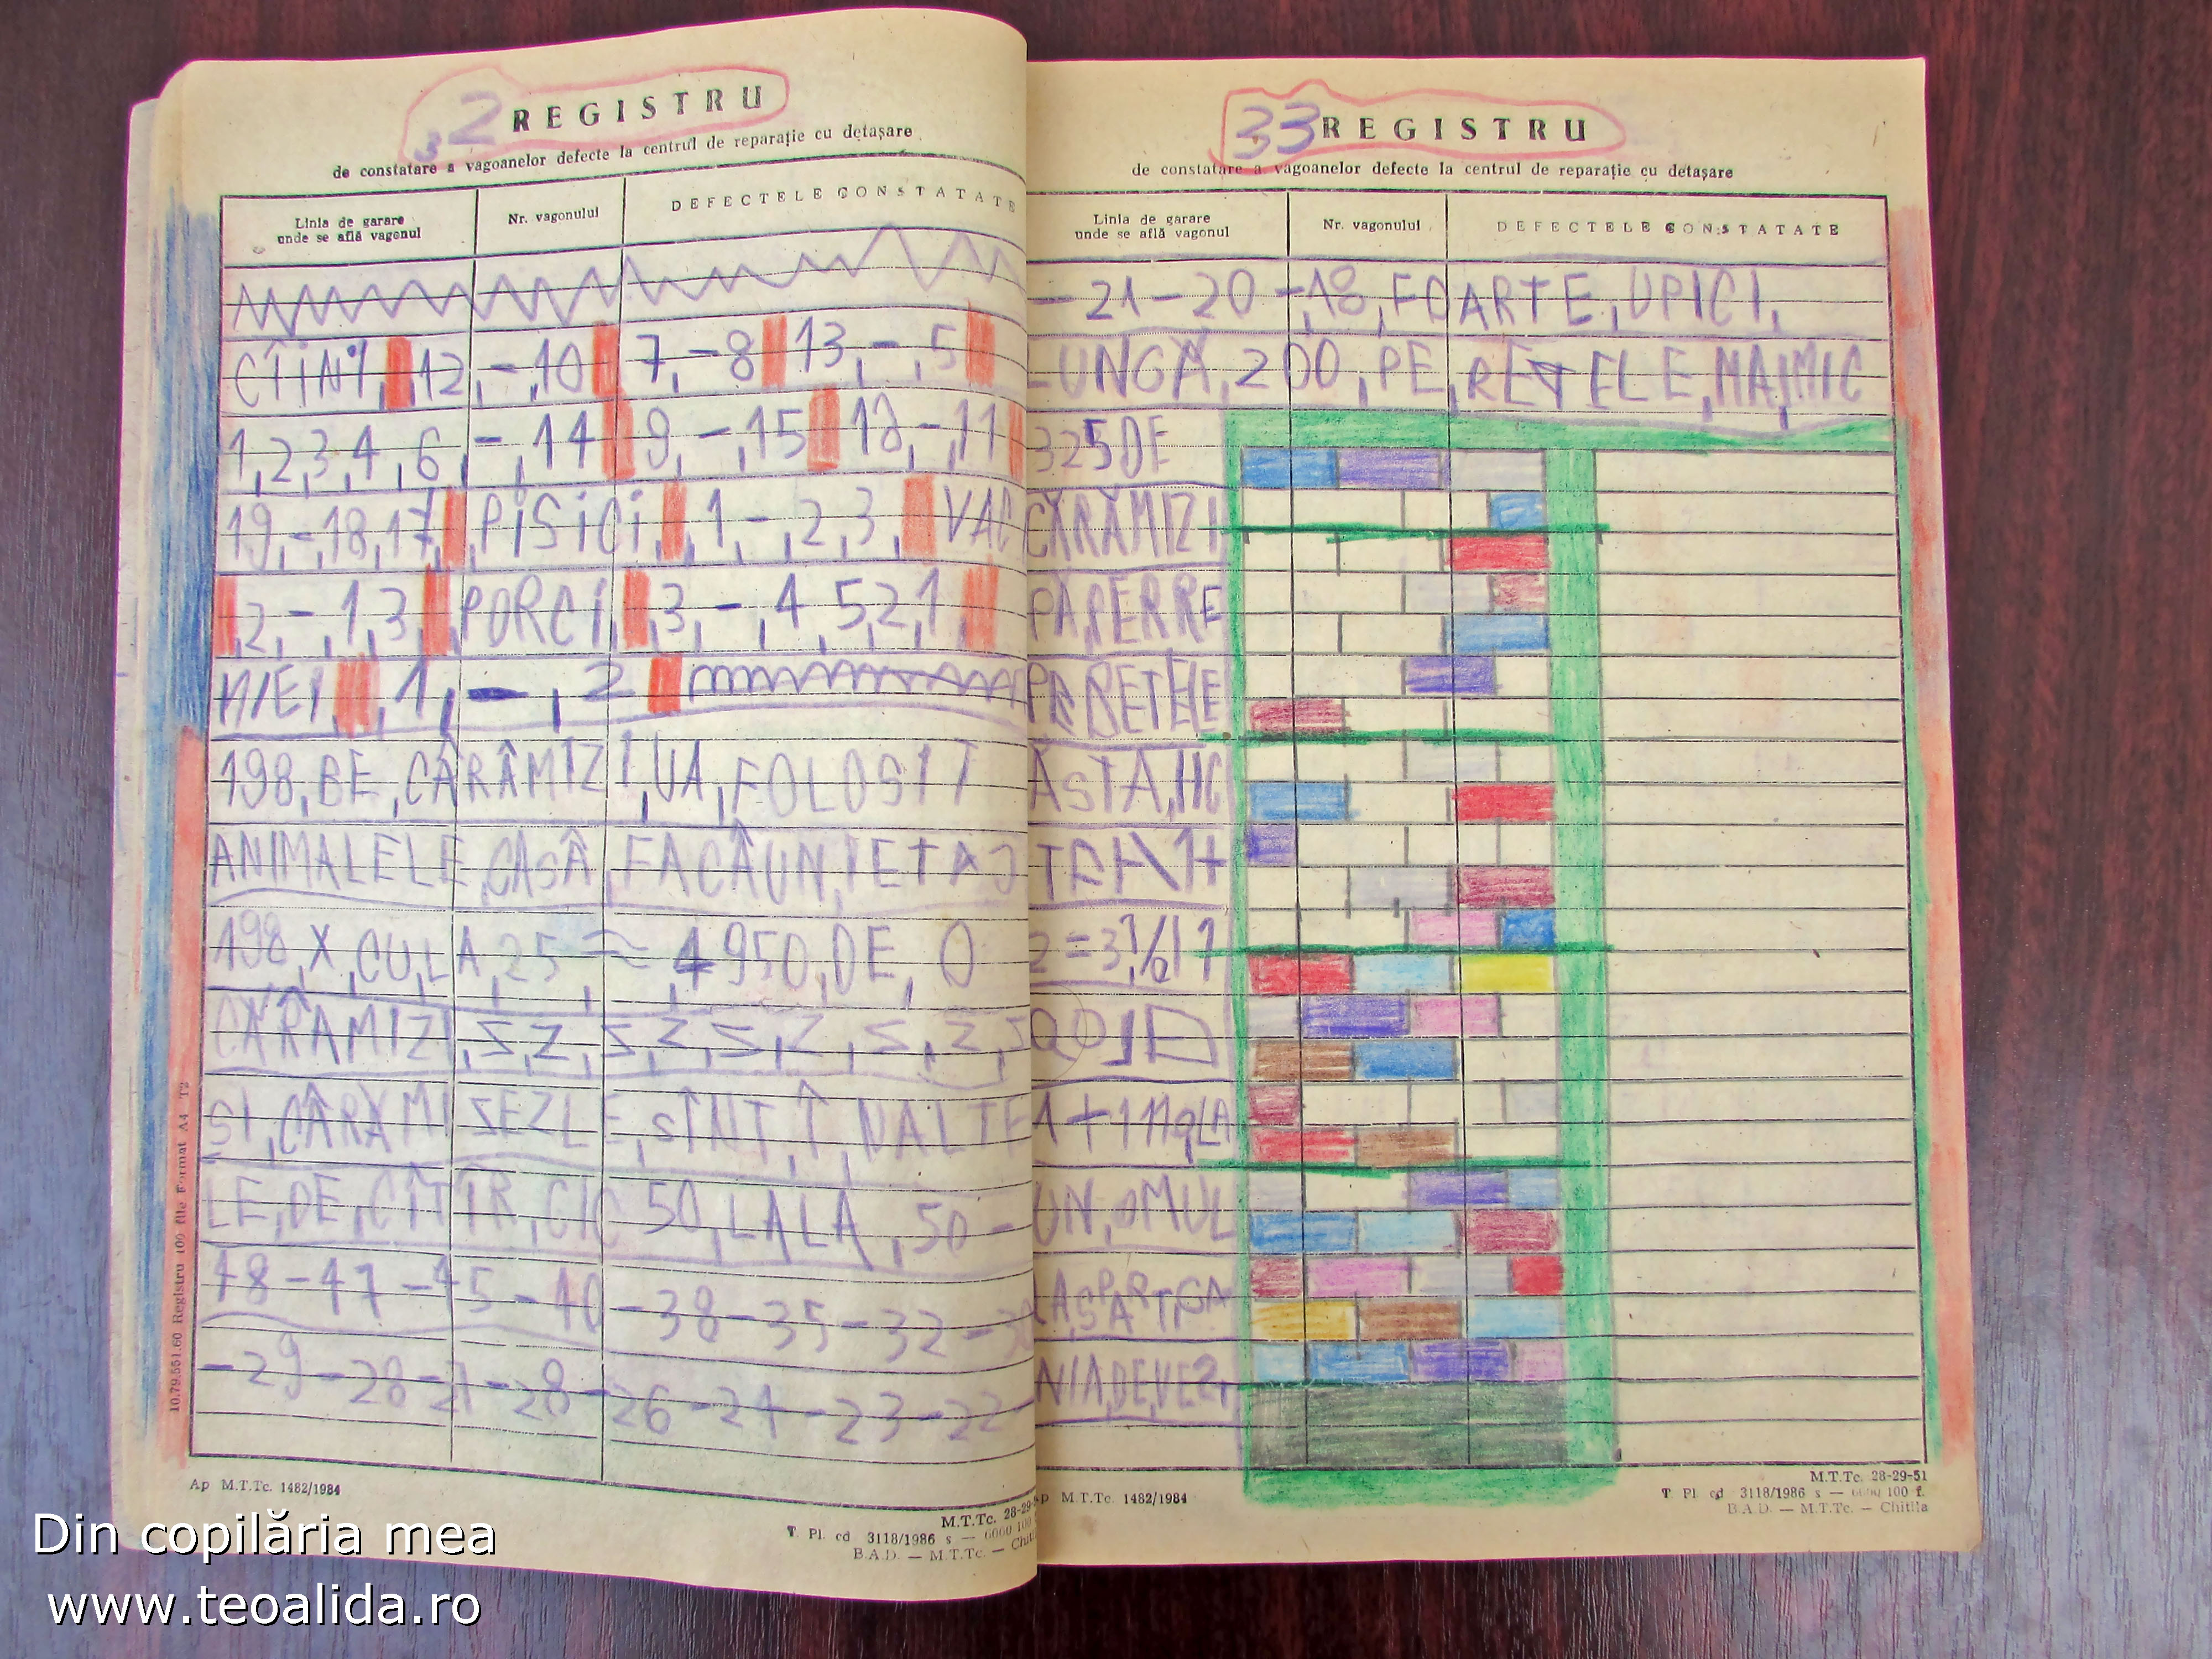 32 REGISTRU
de constatare a vagoanelor defecte la centrul de reparație cu detașare
Linia de garare unde se află vagonul
Nr. vagonului
DEFECTELE CONSTATATE
CÎINI, ,12,-,10 7,-8 13,-,5
1,2,3,4,6,-,14 9,-,15 18,-,11
19,-,18,17, ,PISICI, ,1,-,2,3, VAC
,2,-,1,3 ,PORCI, ,3,-,4,5,2,1,
MIEI ,1,-,2
198,BE,CÂRÂMIZI,UA,FOLOSIT
ANIMALELE,CASÂ,FACÂUN,ETAJ
198,X,CU,LA,25,≈,4950,DE,O
CÂRÂMIZI,S,Z,S,Z,S,Z,S,Z,S
ȘI,CÂRÂMI SEZLE,SÎNT,Î,NALTE
LE,DE,CÎTIR,CIC 50,LALA,50-
48-47-45-40-38-35-32-30
-29-28-21-28-26-24-23-22-
10.79.551.60 Registru 100 file Format A4 T2
Ap M.T.Tc. 1482/1984
M.T.Tc. 28-29-
T. Pl. cd 3118/1986 s — 6000 100
B.A.D. — M.T.Tc. — Chi
33 REGISTRU
de constatare a vagoanelor defecte la centrul de reparație cu detașare
Linia de garare unde se află vagonul
Nr. vagonului
DEFECTELE CONSTATATE
-21-20-,18,FOARTE,UPICI,
LUNGĂ,200,PE,RETELE,MAI,MIC
325DE
CĂRĂMIZI
PĂPERRE
ASTA,
UN,OMUL
NIA,DE,VEZ,
Ap M.T.Tc. 1482/1984
M.T.Tc. 28-29-51
T. Pl. cd 3118/1986 s — 6000 100 f.
B.A.D. — M.T.Tc. — Chitila
Din copilăria mea
www.teoalida.ro